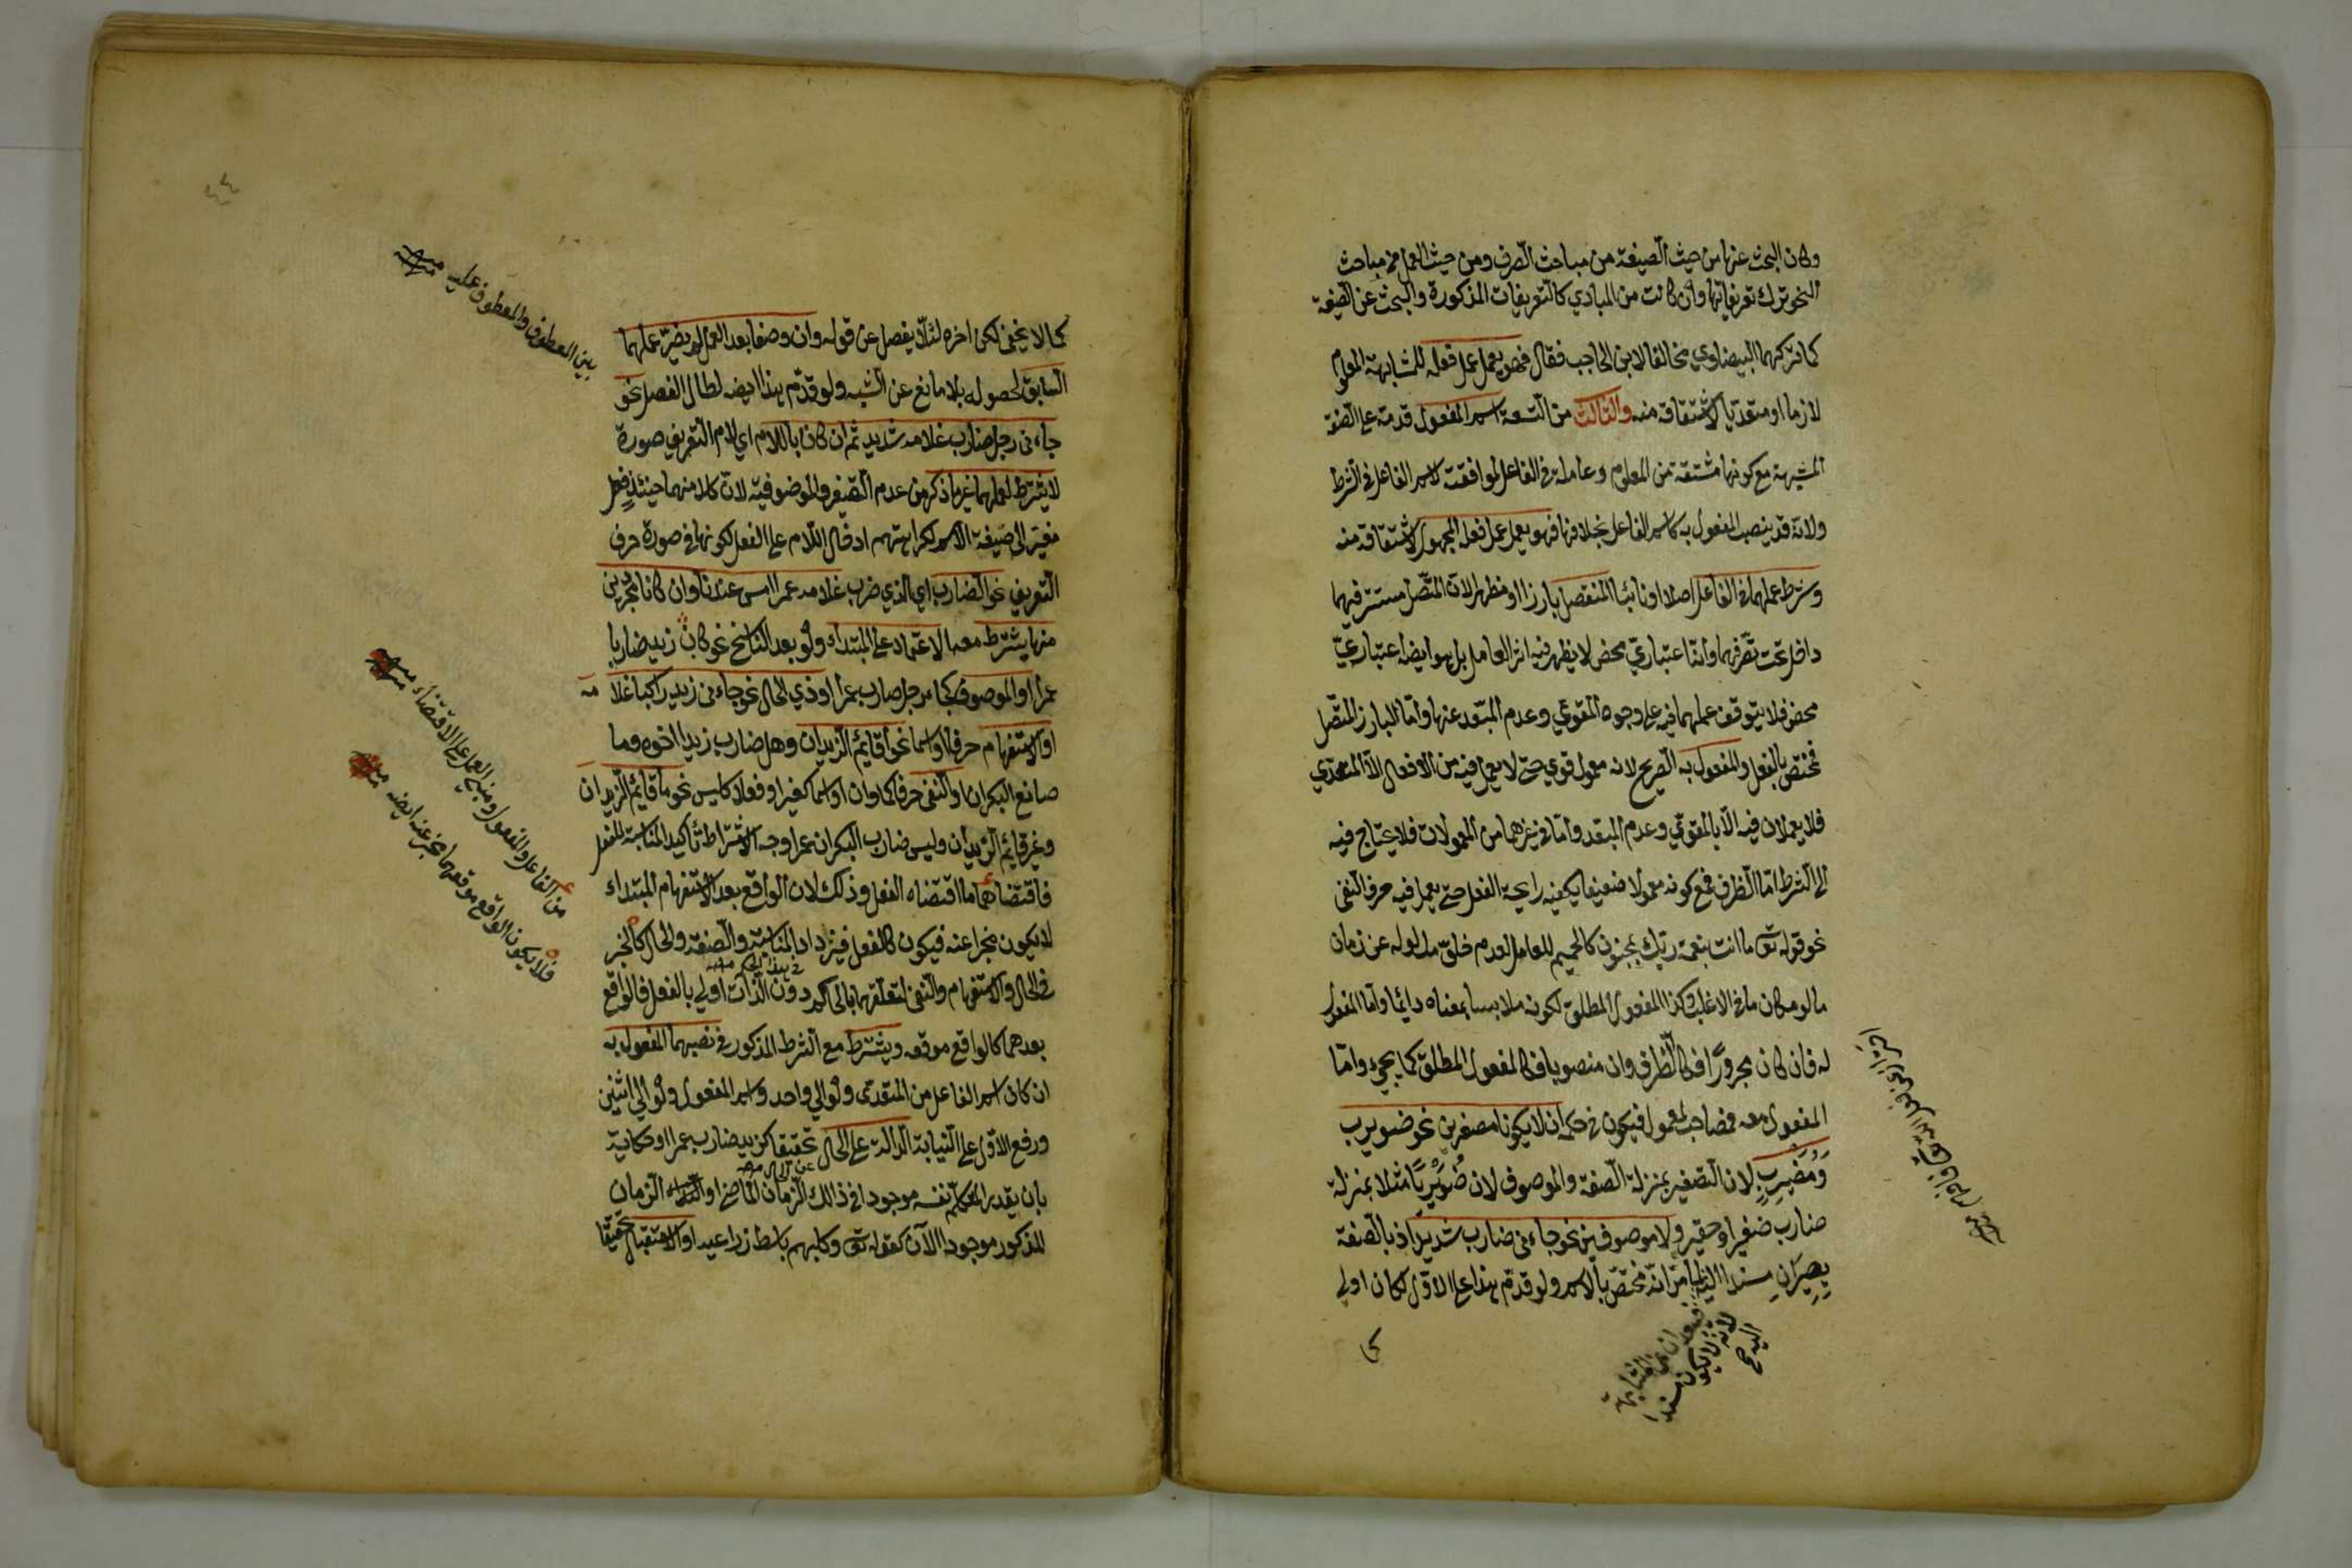 وكان البحث عنها من حيث الصيغة من مباحث الصرف ومن حيث العمل من مباحث
النحو ترك تعريفاتها وان كانت من المبادي كالتعريفات المذكورة والبحث عن الصيغة
كما تركهما البيضاوي مخالفا لابن الحاجب فقال فهو يعمل عمل فعله للمشابهة المعلوم
لازما او متعديا لاشتقاقه منه والثالث من التسعة اسم المفعول قدمه على الصفة
المشبهة مع كونها مشتقة من المعلوم وعاملة في الفاعل لموافقته لاسم الفاعل في الشرط
ولانه قد ينصب المفعول به كاسم الفاعل بخلافها فهو يعمل عمل فعله المجهول لاشتقاقه منه
وشرط عملهما في الفاعل اصلا او نائبا المنفصل بارزا او مظهرا لان المتصل مستتر فيهما
داخل تحت تصرفهما وانها اعتباري محض لا يظهر فيه اثر العامل بل هو ايضا اعتباري
محض فلا يتوقف عملهما فيه على وجوه المقوي وعدم المبعد عنها واما البارز المتصل
فمختص بالفعل والمفعول به الصريح لانه معمول قوي حتى لا يعمل فيه من الافعال الا المتعدي
فلا يعملان فيه الا بالمقوي وعدم المبعد واما في غيرهما من المعمولات فلا يحتاج فيه
الى الشرط اما الظرف فمع كونه معمولا ضعيفا يكفيه رايحة الفعل حتى يعمل فيه حرف النفي
نحو قوله تعالى ما انت بنعمة ربك بمجنون كالحميم للعامل لعدم خلو مدلوله عن زمان
ما او مكان ما في الاغلب وكذا المفعول المطلق لكونه ملابسا بمعناه دائما واما المفعول
له فان كان مجرورا فكالظرف وان منصوبا فكالمفعول المطلق كما يجيء واما
المفعول معه فمصاحب لمعمول فيكون في حكمه ان لا يكونا مصغرين نحو ضويرب
ومضيرب لان التصغير بمنزلة الصفة والموصوف لان ضويربا مثلا بمنزلة
ضارب صغير او حقير ولا موصوفين نحو جاءني ضارب شديد اذ بالصفة
يصيران مسندا اليه لما مر انه مختص بالاسم ولو قدم هذا على الاول لكان اولى
فيبعدان عن المشابهة
لانه لا يكون مسندا
اليه صح
كما
كما لا يخفى لكن اخره لئلا يفصل عن قوله وان وصفا بعد العمل لم يضر عملهما
السابق لحصوله بلا مانع عن الشبه ولو قدم هذا ايضا لطال الفصل نحو
جاءني رجل ضارب غلامه شديد ثم ان كانا باللام اي لام التعريف صورة
لا يشترط لعملهما غير ما ذكر من عدم التصغير والموصوفية لان كلا منهما حينئذ فعل
مغير الى صيغة الاسم لكراهتهم ادخال اللام على الفعل لكونها في صورة حرف
التعريف نحو الضارب اي الذي ضرب غلامه عمرا امس عندنا وان كانا مجردين
منها يشترط معه الاعتماد على المبتداء ولو بعد الناسخ نحو كان زيد ضاربا
عمرا او الموصوف كجاء رجل ضارب عمرا او ذي الحال نحو جاءني زيد راكبا غلامه
او الاستفهام حرفا او اسما نحو أقائم الزيدان وهل ضارب زيدا اخوه وما
صانع البكران او النفي حرفا كما وان او اسما كغير او فعلا كليس نحو ما قائم الزيدان
وغير قائم الزيدان وليس ضارب البكران عمرا وجه الاشتراط تأكيد المناسبة للفعل
فاقتضاهما ما اقتضاه الفعل وذلك لان الواقع بعد الاستفهام المبتداء
لا يكون مخبرا عنه فيكون كالفعل فيزداد المناسبة والصفة والحال كالخبر
في هذا الحكم منه
في الحال والاستفهام والنفي لتعلقهما بالحكم دون الذات اولى بالفعل فالواقع
بعدهما كالواقع موقعه ويشترط مع الشرط المذكور في نصبهما المفعول به
ان كان اسم الفاعل من المتعدي ولو الى واحد واسم المفعول ولو الى اثنين
ورفع الاول على النيابة الدلالة على الحال تحقيقا كزيد ضارب عمرا او حكاية
بان يقدر المتكلم نفسه موجودا في ذلك الزمان الماضي او الزمان
المذكور موجودا الآن كقوله تعالى وكلبهم باسط ذراعيه او الاستقبال تحقيقا
بين المعطوف والمعطوف عليه منه
من الفاعل والمفعول او منع العمل على الاقتضاء منه
فلا يكون الواقع موقعهما مخبر عنه ايضا منه